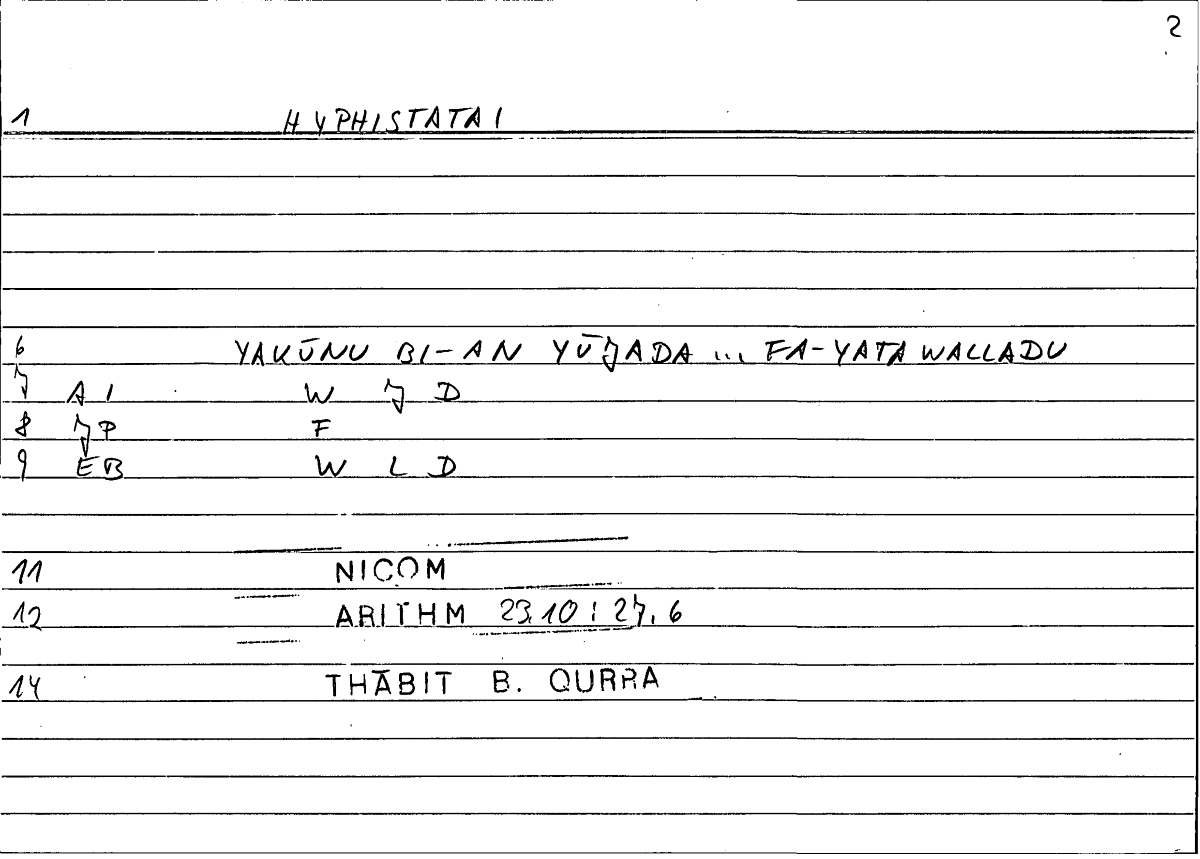 2
1 HYPHISTATAI
6 YAKŪNU BI-AN YŪJADA ... FA-YATAWALLADU
7 AI W J D
8 JP F
9 EB W L D
11 NICOM
12 ARITHM 23.10 : 27.6
14 THĀBIT B. QURRA